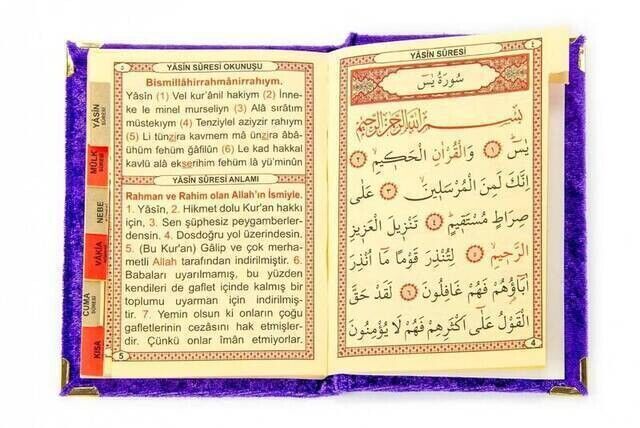 ٥
YÂSİN SÛRESİ OKUNUŞU
Bismillâhirrahmânirrahıym.
Yâsîn (1) Vel kur'ânil hakiym (2) İnne-
ke le minel murseliyn (3) Alâ sırâtım
müstekıym (4) Tenziylel aziyzir rahıym
(5) Li tünzira kavmem mâ ünzira âbâ-
ühüm fehüm gâfilûn (6) Le kad hakkal
kavlü alâ ekserihim fehüm lâ yü'minûn
YÂSİN SÛRESİ ANLAMI
Rahman ve Rahim olan Allah'ın İsmiyle.
1. Yâsîn, 2. Hikmet dolu Kur'an hakkı
için, 3. Sen şüphesiz peygamberler-
densin. 4. Dosdoğru yol üzerindesin.
5. (Bu Kur'an) Gâlip ve çok merha-
metli Allah tarafından indirilmiştir. 6.
Babaları uyarılmamış, bu yüzden
kendileri de gaflet içinde kalmış bir
toplumu uyarman için indirilmiş-
tir. 7. Yemin olsun ki onların çoğu
gafletlerinin cezasını hak etmişler-
dir. Çünkü onlar îmân etmiyorlar.
5
YÂSİN
SÛRESİ
MÜLK
SÛRESİ
NEBE
VÂKIA
CUMA
SÛRESİ
KISA
YÂSİN SÛRESİ
٤
سُورَةُ يٰسٓ
بِسْمِ اللّٰهِ الرَّحْمٰنِ الرَّحِيمِ
يٰسٓ ﴿١﴾ وَالْقُرْاٰنِ الْحَكٖيمِ ﴿٢﴾
اِنَّكَ لَمِنَ الْمُرْسَلٖينَ ﴿٣﴾ عَلٰى
صِرَاطٍ مُسْتَقٖيمٍ ﴿٤﴾ تَنْزٖيلَ الْعَزٖيزِ
الرَّحٖيمِ ﴿٥﴾ لِتُنْذِرَ قَوْمًا مَٓا اُنْذِرَ
اٰبَٓاؤُ۬هُمْ فَهُمْ غَافِلُونَ ﴿٦﴾ لَقَدْ حَقَّ
الْقَوْلُ عَلٰٓى اَكْثَرِهِمْ فَهُمْ لَا يُؤْمِنُونَ
4